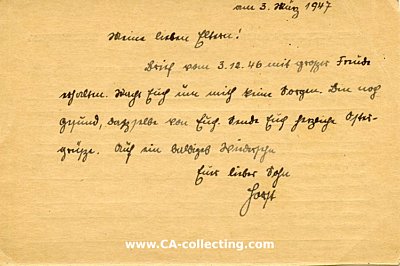 am 3. März 1947
Meine lieben Eltern!
Brief vom 3.12.46 mit großer Freude
erhalten. Macht Euch um mich keine Sorgen. Bin noch
gesund, dasselbe von Euch. Sende Euch herzliche Oster-
grüße. Auf ein baldiges Wiedersehn
Euer lieber Sohn
Horst
www.CA-collecting.com